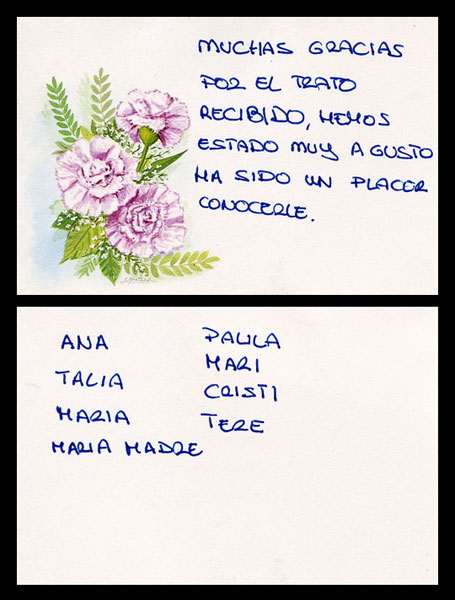 MUCHAS GRACIAS
POR EL TRATO
RECIBIDO, HEMOS
ESTADO MUY A GUSTO
HA SIDO UN PLACER
CONOCERLE.
ANA
TALIA
MARIA
MARIA MADRE
PAULA
MARI
CRISTI
TERE